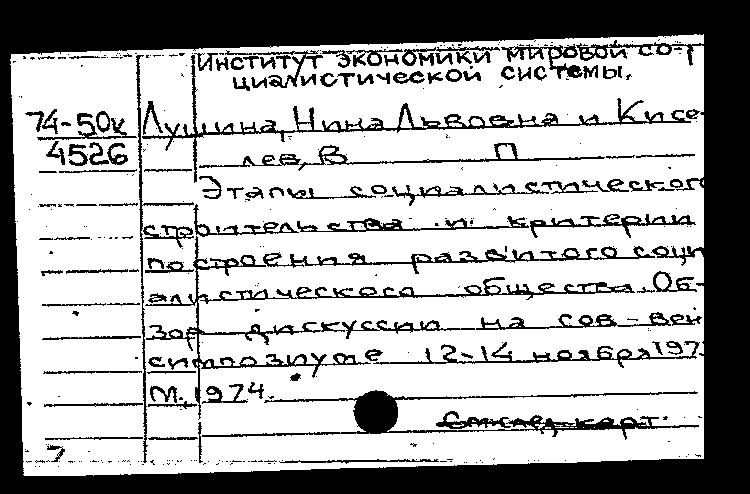 Институт экономики мировой со-
циалистической системы.
74-50к Лушина, Нина Львовна и Кисе-
4526 лев, В П
Этапы социалистического
строительства и критерии
построения развитого соци
алистического общества. Об-
зор дискуссии на сов-вен
симпозиуме 12-14 ноября 197
М., 1974.
карт.
7